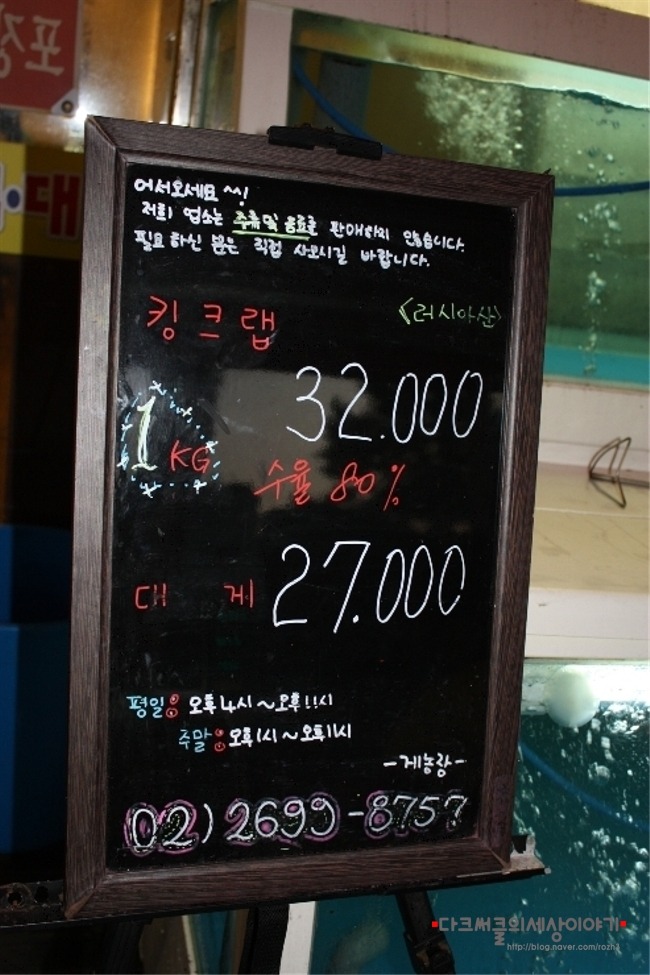 포장
대
어서오세요 ^^!
저희 업소는 주류및 음료를 판매하지 않습니다.
필요하신 분은 직접 사오시길 바랍니다.
킹크랩 <러시아산>
1KG 32.000
수율 80%
대게 27.000
평일: 오후4시~오후11시
주말:오후1시~오후11시
-게농랑-
02) 2699-8757
다크써클의세상이야기
http://blog.naver.com/rozh1